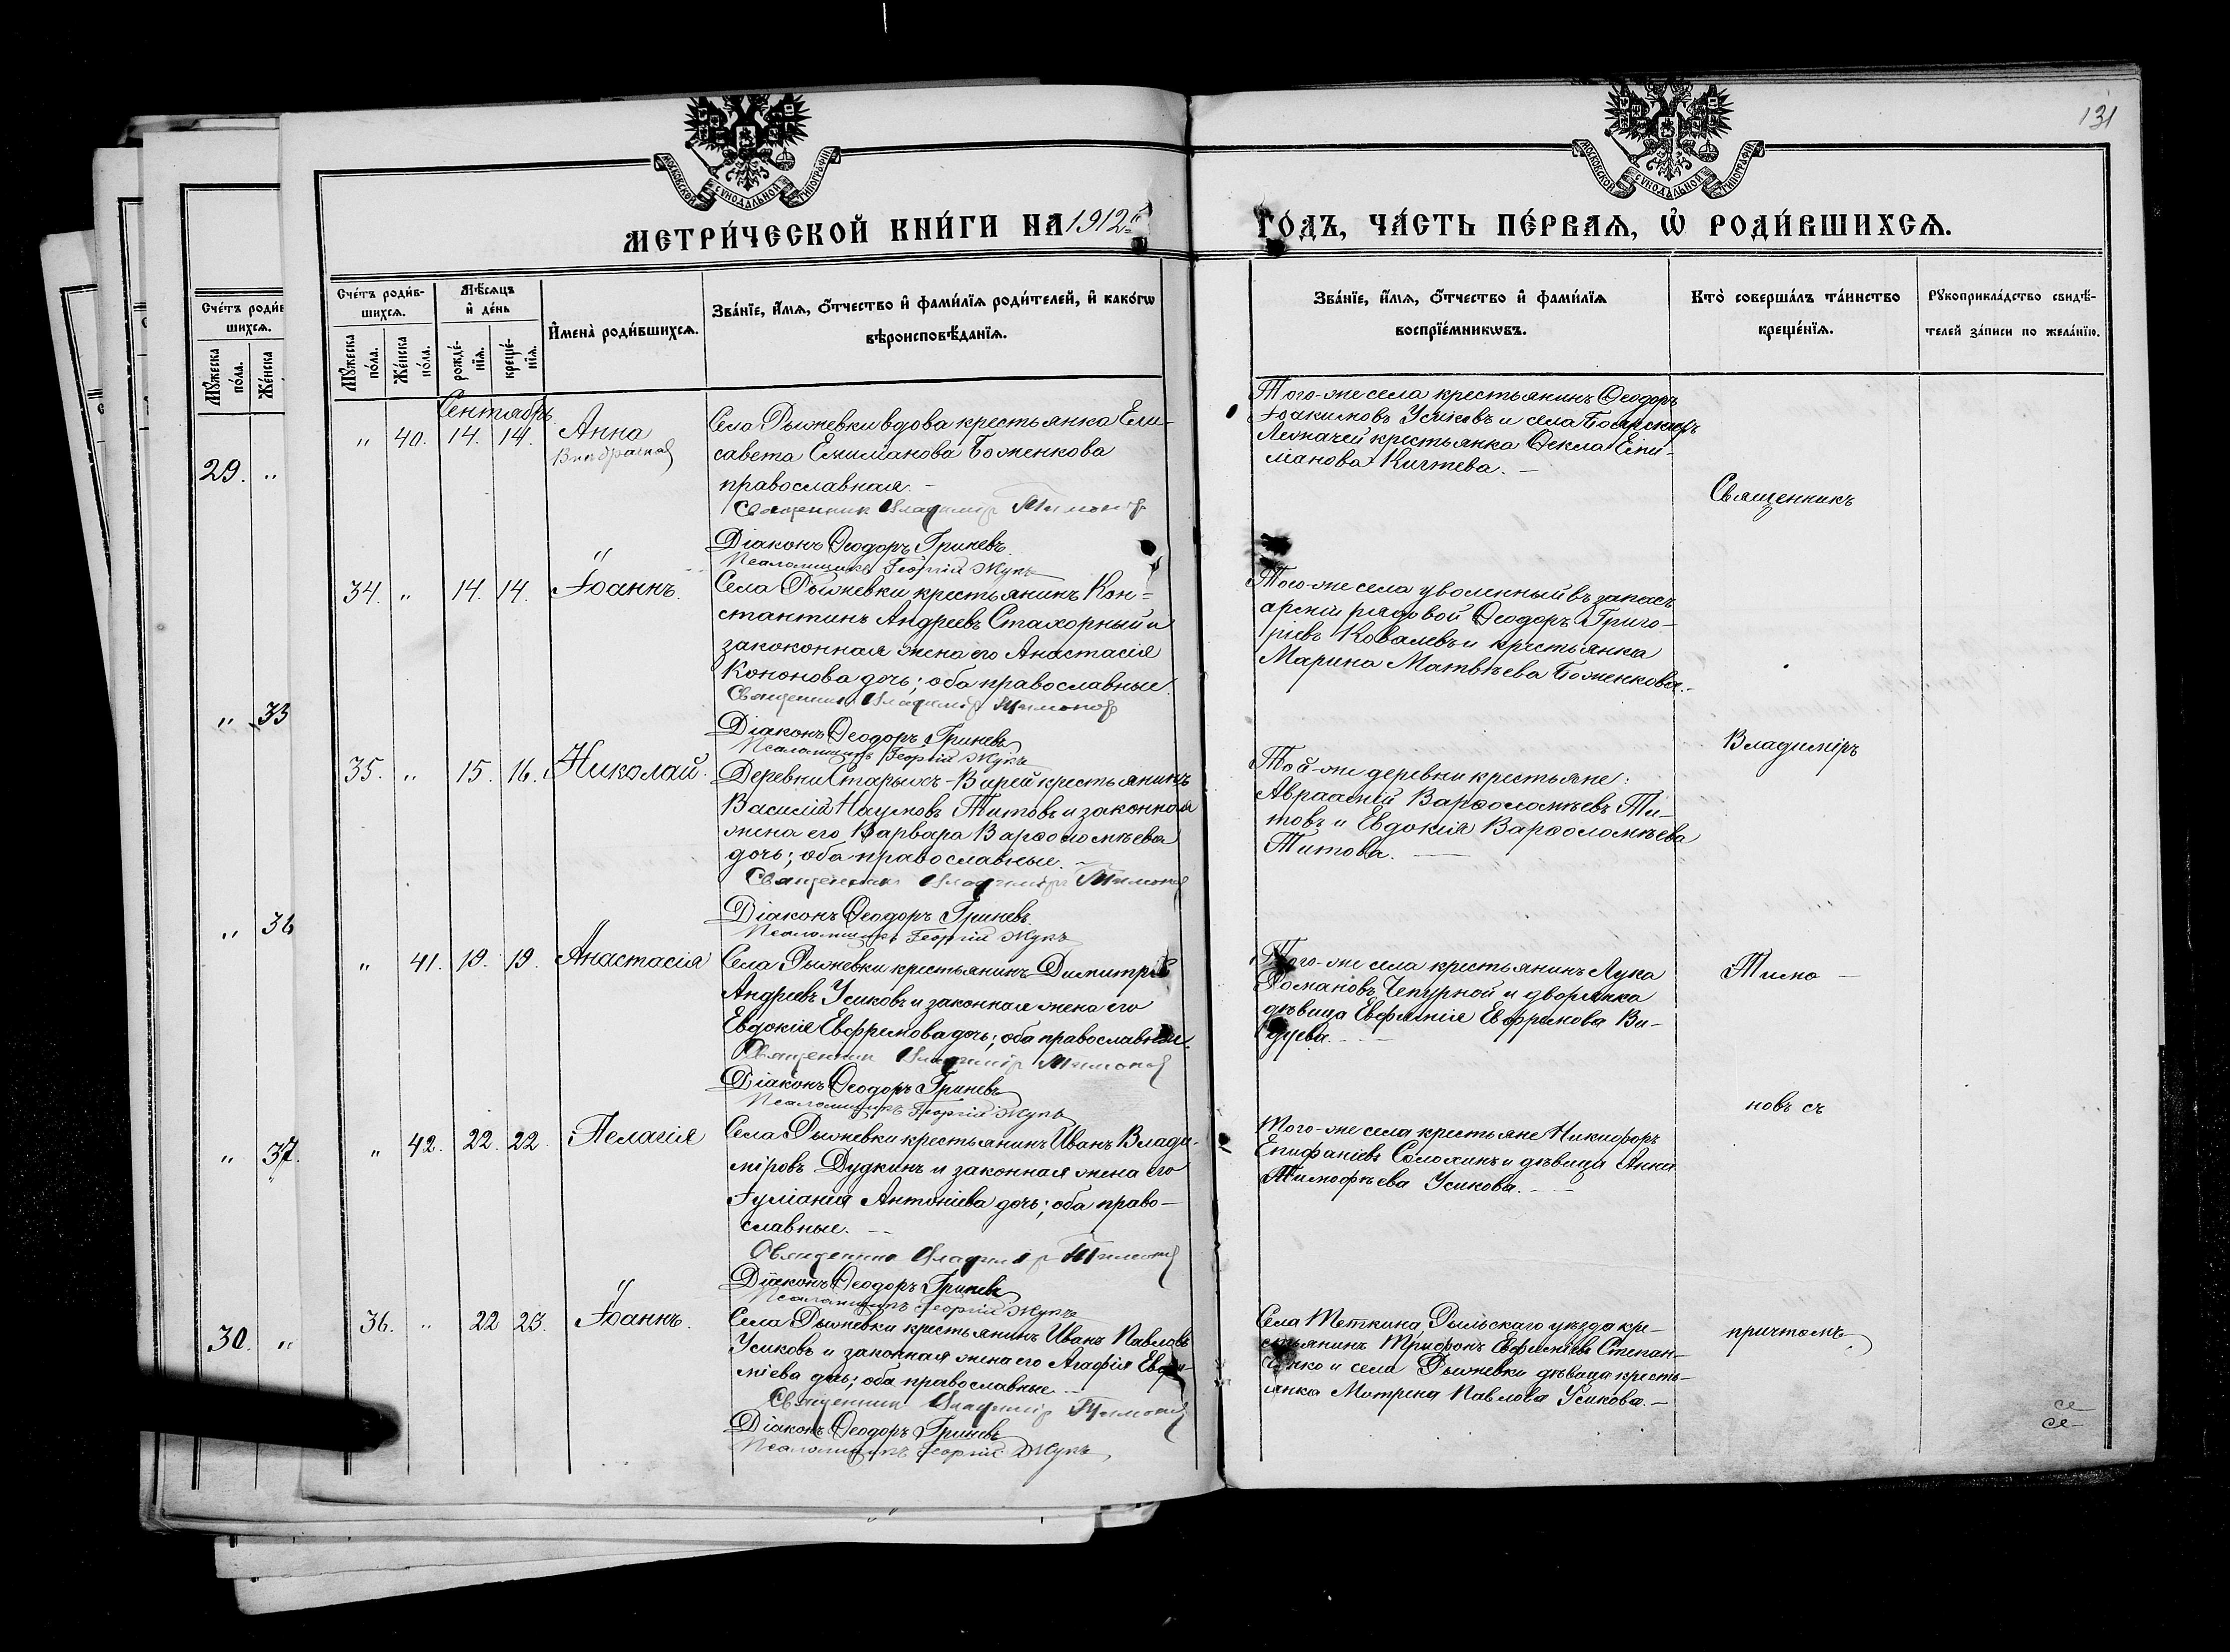 131
МОСКОВСКОЙ СѴНОДАЛЬНОЙ ТИПОГРАФІИ
МОСКОВСКОЙ СѴНОДАЛЬНОЙ ТИПОГРАФІИ
МЕТРИ́ЧЕСКОЙ КНИ́ГИ НА 1912 й
ГО́ДЪ, ЧА́СТЬ ПЕ́РВАЯ, Ѡ РОДИ́ВШИХСЯ.
Сче́тъ роди́в-
шихся.
Му́жеска
по́ла.
Же́нска
Сче́тъ роди́в-
шихся.
Му́жеска
по́ла.
Же́нска
по́ла.
Мѣ́сяцъ
и де́нь
рожде́-
нія.
креще́-
нія.
Имена̀ роди́вшихся.
Зва́ніе, и́мя, о́тчество и фами́лія роди́телей, и како́гѡ
вѣроисповѣ́данія.
Зва́ніе, и́мя, о́тчество и фами́лія
воспріе́мникѡвъ.
Кто̀ соверша́лъ та́инство
креще́нія.
Рукоприкла́дство свидѣ́-
телей за́писи по жела́нію.
29. "
" 33
" 36
" 37.
30. "
Сентябрь
" 40. 14. 14. Анна
Внебрачная
Села Рыжевки вдова крестьянка Ели-
савета Епиманова Боженкова
православная. –
Священник Владимір Тимонов
Діаконъ Ѳеодоръ Гриневъ.
Псаломщикъ Георгій Жукъ
Того-же села крестьянинъ Ѳеодоръ
Іоакимовъ Усиковъ и села Боярскихъ
Лежачей крестьянка Ѳекла Епи-
манова . –
Священникъ
34. " 14. 14. Іоаннъ.
Села Рыжевки крестьянинъ Кон-
стантинъ Андреевъ Стахорный и
закоконная жена его Анастасія
Кононова дочь; оба православные.
Священник Владимір Тимонов
Діаконъ Ѳеодоръ Гриневъ
Псаломщикъ Георгій Жукъ
Того-же села уволенный въ запасъ
арміи рядовой Ѳеодоръ Григо-
ріевъ Ковалевъ и крестьянка
Марина Матвѣева Боженкова. –
Владиміръ
35. " 15. 16. Николай.
Деревни Старыхъ-Вирей крестьянинъ
Василій Наумовъ Титовъ и законная
жена его Варвара Варѳоломѣева
дочь; оба православные. –
Священник Владимір Тимонов
Діаконъ Ѳеодоръ Гриневъ.
Псаломщикъ Георгій Жукъ
Той-же деревни крестьяне:
Авраамій Варѳоломѣевъ Ти-
товъ и Евдокія Варѳоломѣева
Титова. –
" 41. 19. 19. Анастасія
Села Рыжевки крестьянинъ Димитрій
Андреевъ Усиковъ и законная жена его
Евдокія Евфремова дочь; оба православные.
Священник Владимір Тимонов
Діаконъ Ѳеодоръ Гриневъ
Псаломщикъ Георгій Жукъ
Того-же села крестьянинъ Лука
Романовъ Чепурной и дворянка
дѣвица Евфимія Евфремова Ви-
. –
Тимо –
новъ съ
" 42. 22. 22. Пелагія
Села Рыжевки крестьянинъ Иванъ Влади-
міровъ Дудкинъ и законная жена его
Іуліанія Антоніева дочь; оба право-
славные. –
Священник Владимір Тимонов
Діаконъ Ѳеодоръ Гриневъ
Псаломщикъ Георгій Жукъ
Того-же села крестьяне Никифоръ
Епифаніевъ Соломинъ и дѣвица Анна
Тимофѣева Усикова. –
36. " 22 23. Іоаннъ.
Села Рыжевки крестьянинъ Иванъ Павловъ
Усиковъ и законная жена его Агафія Евфи-
міева дочь; оба православные –
Священник Владимір Тимонов
Діаконъ Ѳеодоръ Гриневъ
Псаломщикъ Георгій Жукъ
Села Теткина, Рыльскаго уѣзда кре-
стьянинъ Трифонъ Евфиміевъ Степан-
ченко и села Рыжевки дѣвица кресть-
янка Митрена Павлова Усикова. –
причтомъ.
се
се